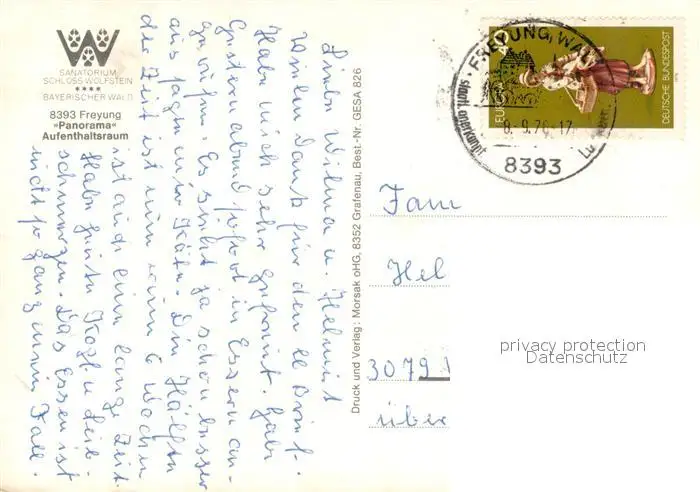 SANATORIUM
SCHLOSS WOLFSTEIN
****
BAYERISCHER WALD
8393 Freyung
»Panorama«
Aufenthaltsraum
Liebe Wilma u. Helmut
Vielen Dank für den lb Brief.
Habe mich sehr gefreut. Habe
Gestern abend sofort in Essern an-
gerufen. Es sieht ja schon besser
aus sagen wir Käte. Die Hälfte
der Zeit ist um wenn 6 Wochen
ist auch eine lange Zeit
Habe guten Kopf u Leib-
schmerzen. Das Essen ist
nicht so ganz mein Fall.
Druck und Verlag: Morsak oHG, 8352 Grafenau, Best.-Nr. GESA 826
FREYUNG, WALD
staatl. anerkannt
8.9.76-17
8393
EUROPA
DEUTSCHE BUNDESPOST
Fam
Hel
3079
über
privacy protection
Datenschutz